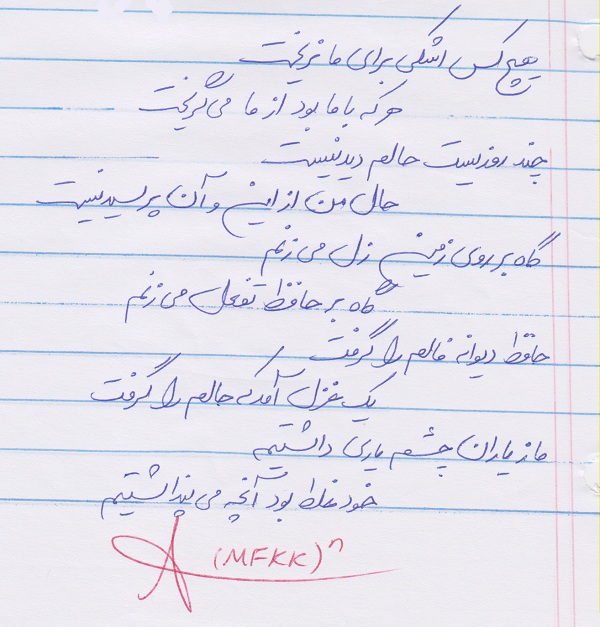 هیچ کس اشکی برای ما نریخت
هر که با ما بود از ما می گریخت
چند روزیست حالم دیدنیست
حال من از این و آن پرسیدنیست
گاه بر روی زمین زل می زنم
گاه بر حافظ تفعل می زنم
حافظ دیوانه فالم را گرفت
یک غزل آمد که حالم را گرفت
ما ز یاران چشم یاری داشتیم
خود غلط بود آنچه می پنداشتیم
(MFKK)ⁿ